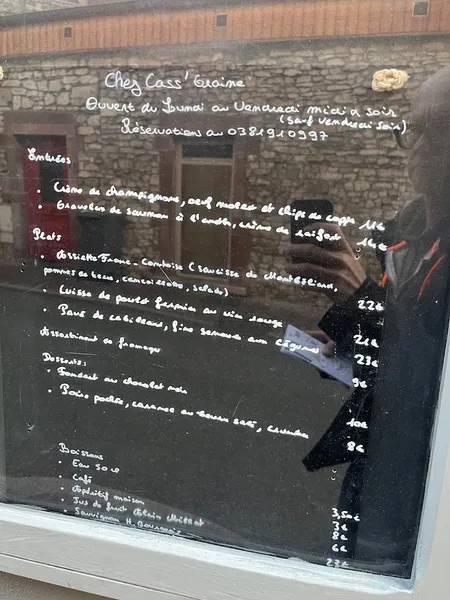 Chez Cass' Graine
Ouvert du Lundi au Vendredi midi & soir
(sauf Vendredi soir)
Réservations au 0381910997
Entrées
• Crème de champignons, oeuf mollet et chips de coppa 11€
• Gravelax de saumon à l'aneth, crème de raifort 14€
Plats
• Assiette Franc-Comtoise (saucisse de Montbéliard,
pommes de terre, cancoillotte, salade) 22€
• Cuisse de poulet fermier au vin rouge 21€
• Pavé de cabillaud, fine semoule aux légumes 23€
Assortiment de fromages 9€
Desserts
• Fondant au chocolat noir 10€
• Poire pochée, caramel au beurre salé, crumble 8€
Boissons
• Eau 50cl 3,50€
• Café 3€
• Apéritif maison 8€
• Jus de fruit Alain Milliat 6€
• Sauvignon H. Bourgeois 23€